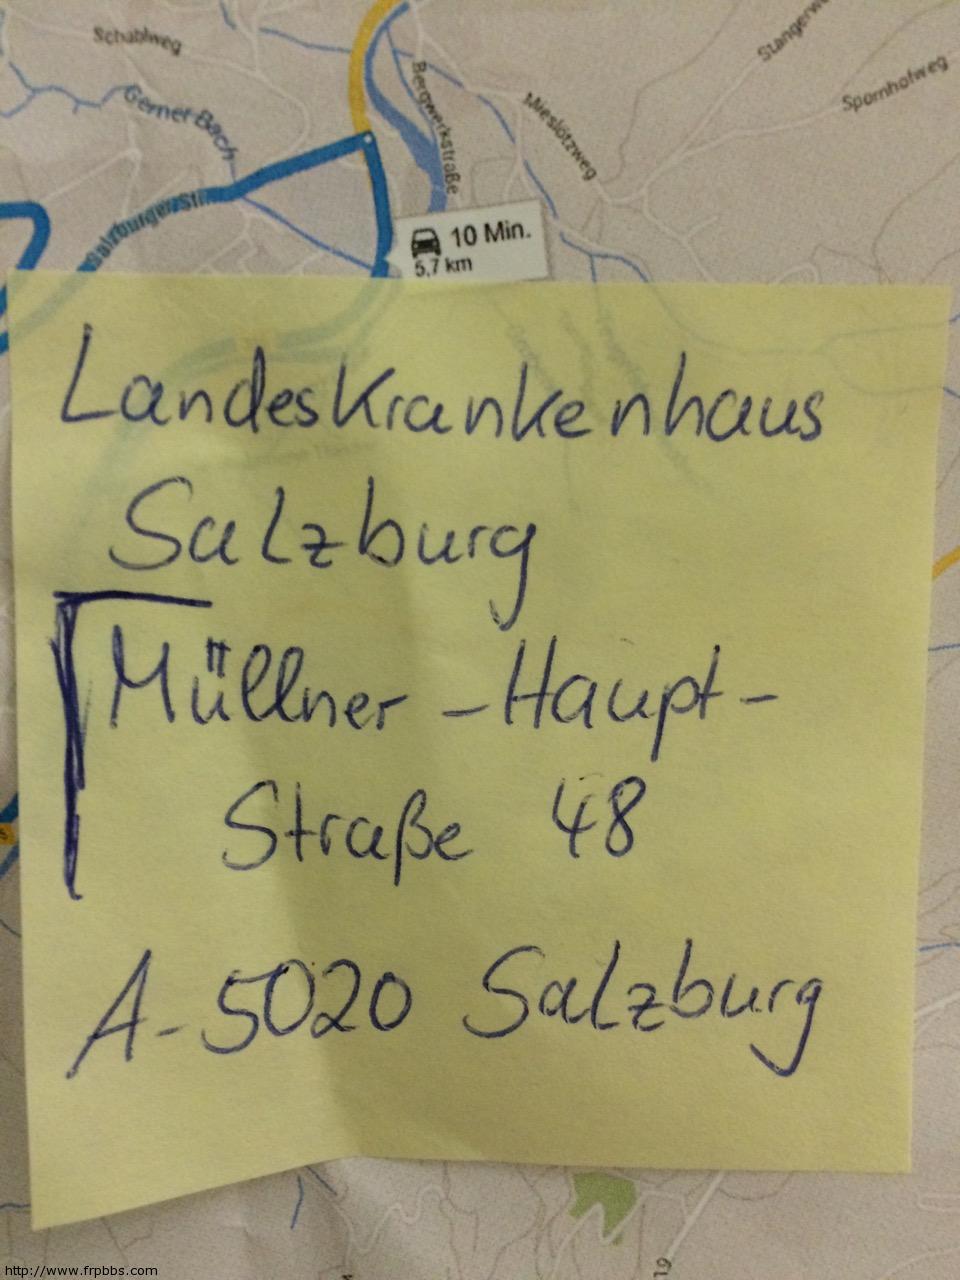 Schablweg
Gerner Bach
Salzburger Str.
Bergwerkstraße
Mieslötzweg
Spornhofweg
10 Min.
5,7 km
Landeskrankenhaus
Salzburg
Müllner-Haupt-
Straße 48
A-5020 Salzburg
19
http://www.frpbbs.com